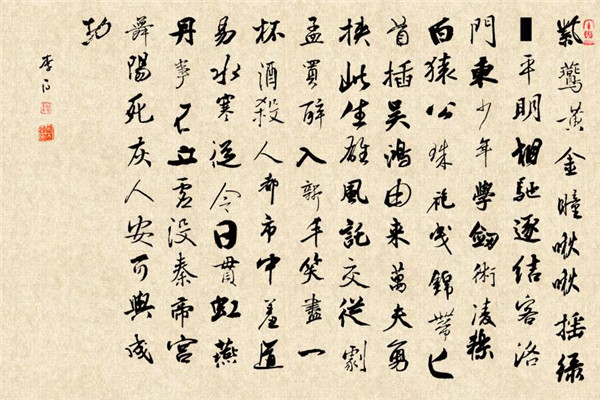 紫鷰黃金瞳啾啾搖綠
平明相馳逐結客洛
門東少年學劒術凌轢
白猿公珠袍曳錦帶匕
首插吳鴻由來萬夫勇
挾此生雄風託交從劇
孟買醉入新丰笑盡一
杯酒殺人都市中羞道
易水寒從今日貫虹燕
丹事不立虛沒秦帝宮
舞陽死灰人安可與成
功
李白